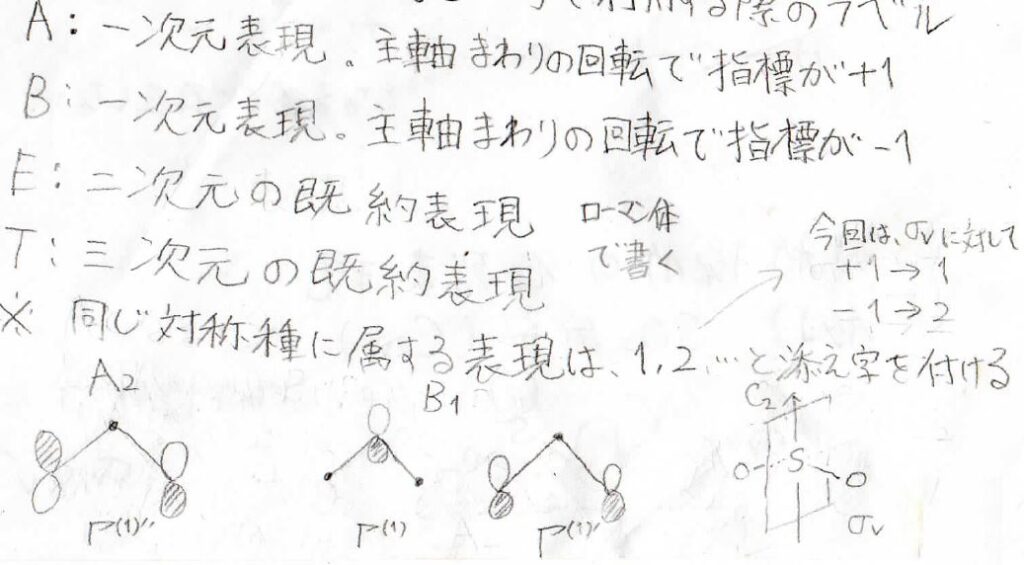 際のラベル
A：一次元表現。主軸まわりの回転で指標が+1
B：一次元表現。主軸まわりの回転で指標が-1
E：二次元の既約表現
T：三次元の既約表現
ローマン体
で書く
今回は、σvに対して
+1→1
-1→2
※ 同じ対称種に属する表現は、1,2…と添え字を付ける
A2
B1
C2
O S O
σv
Γ(1)''
Γ(1)
Γ(1)'